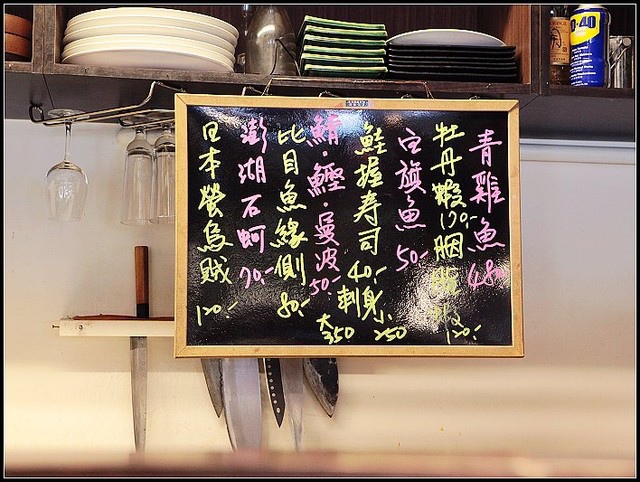 青雞魚 480
牡丹蝦 170.-
胭脂蝦 120.-
白旗魚 50.-
鮭握寿司 40.-
刺身 大350 250
鯖.鰹.曼波 50.-
比目魚緣側 80.-
澎湖石蚵 70.-
日本螢烏賊 120.-
40